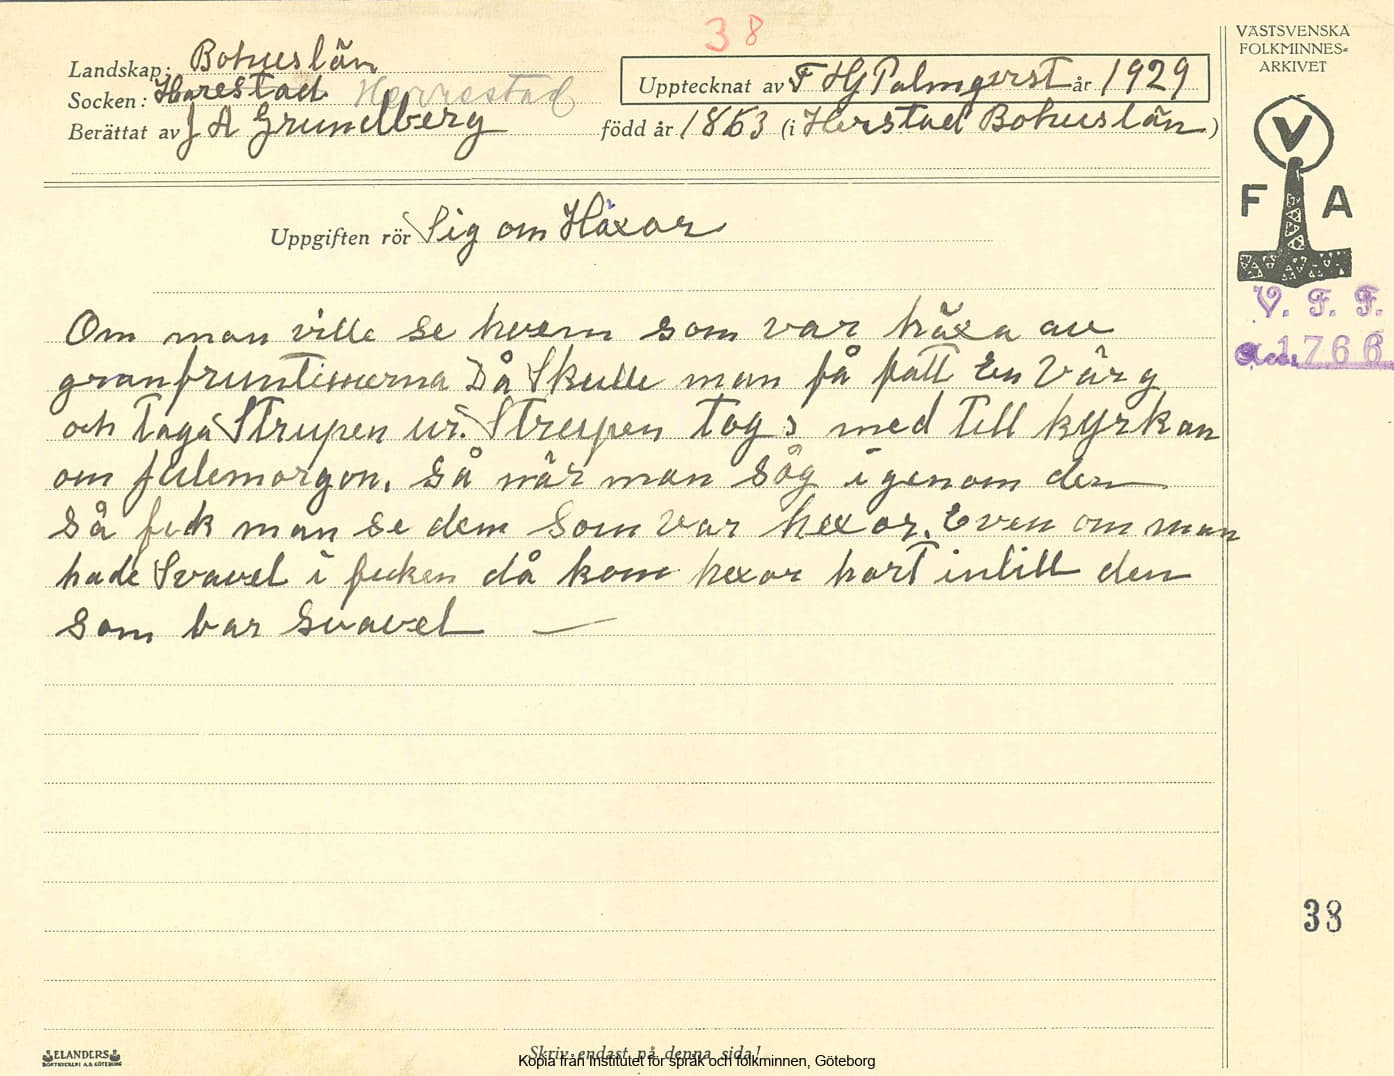 38
VÄSTSVENSKA
FOLKMINNES-
ARKIVET
Landskap: Bohuslän
Socken: Harestad Herrestad
Upptecknat av F HJ Palmqvist år 1929
Berättat av J A Grundberg född år 1863 (i Herstad Bohuslän)
V
F A
Uppgiften rör Sig om Häxor
V. F. F.
1766
Om man ville se hvem som var häxa av
granfruntimerna Då Skulle man få fatt En Varg
och taga Strupen ur. Strupen togs med till kyrkan
om julemorgon. Så när man såg igenom den
Så fick man se dem Som var hexor. Even om man
hade Svavel i ficken då kom hexor hart intill den
som bar svavel —
38
ELANDERS
BOKTRYCKERI A.B. GÖTEBORG
Skriv endast på denna sida!
Kopia från Institutet för språk och folkminnen, Göteborg